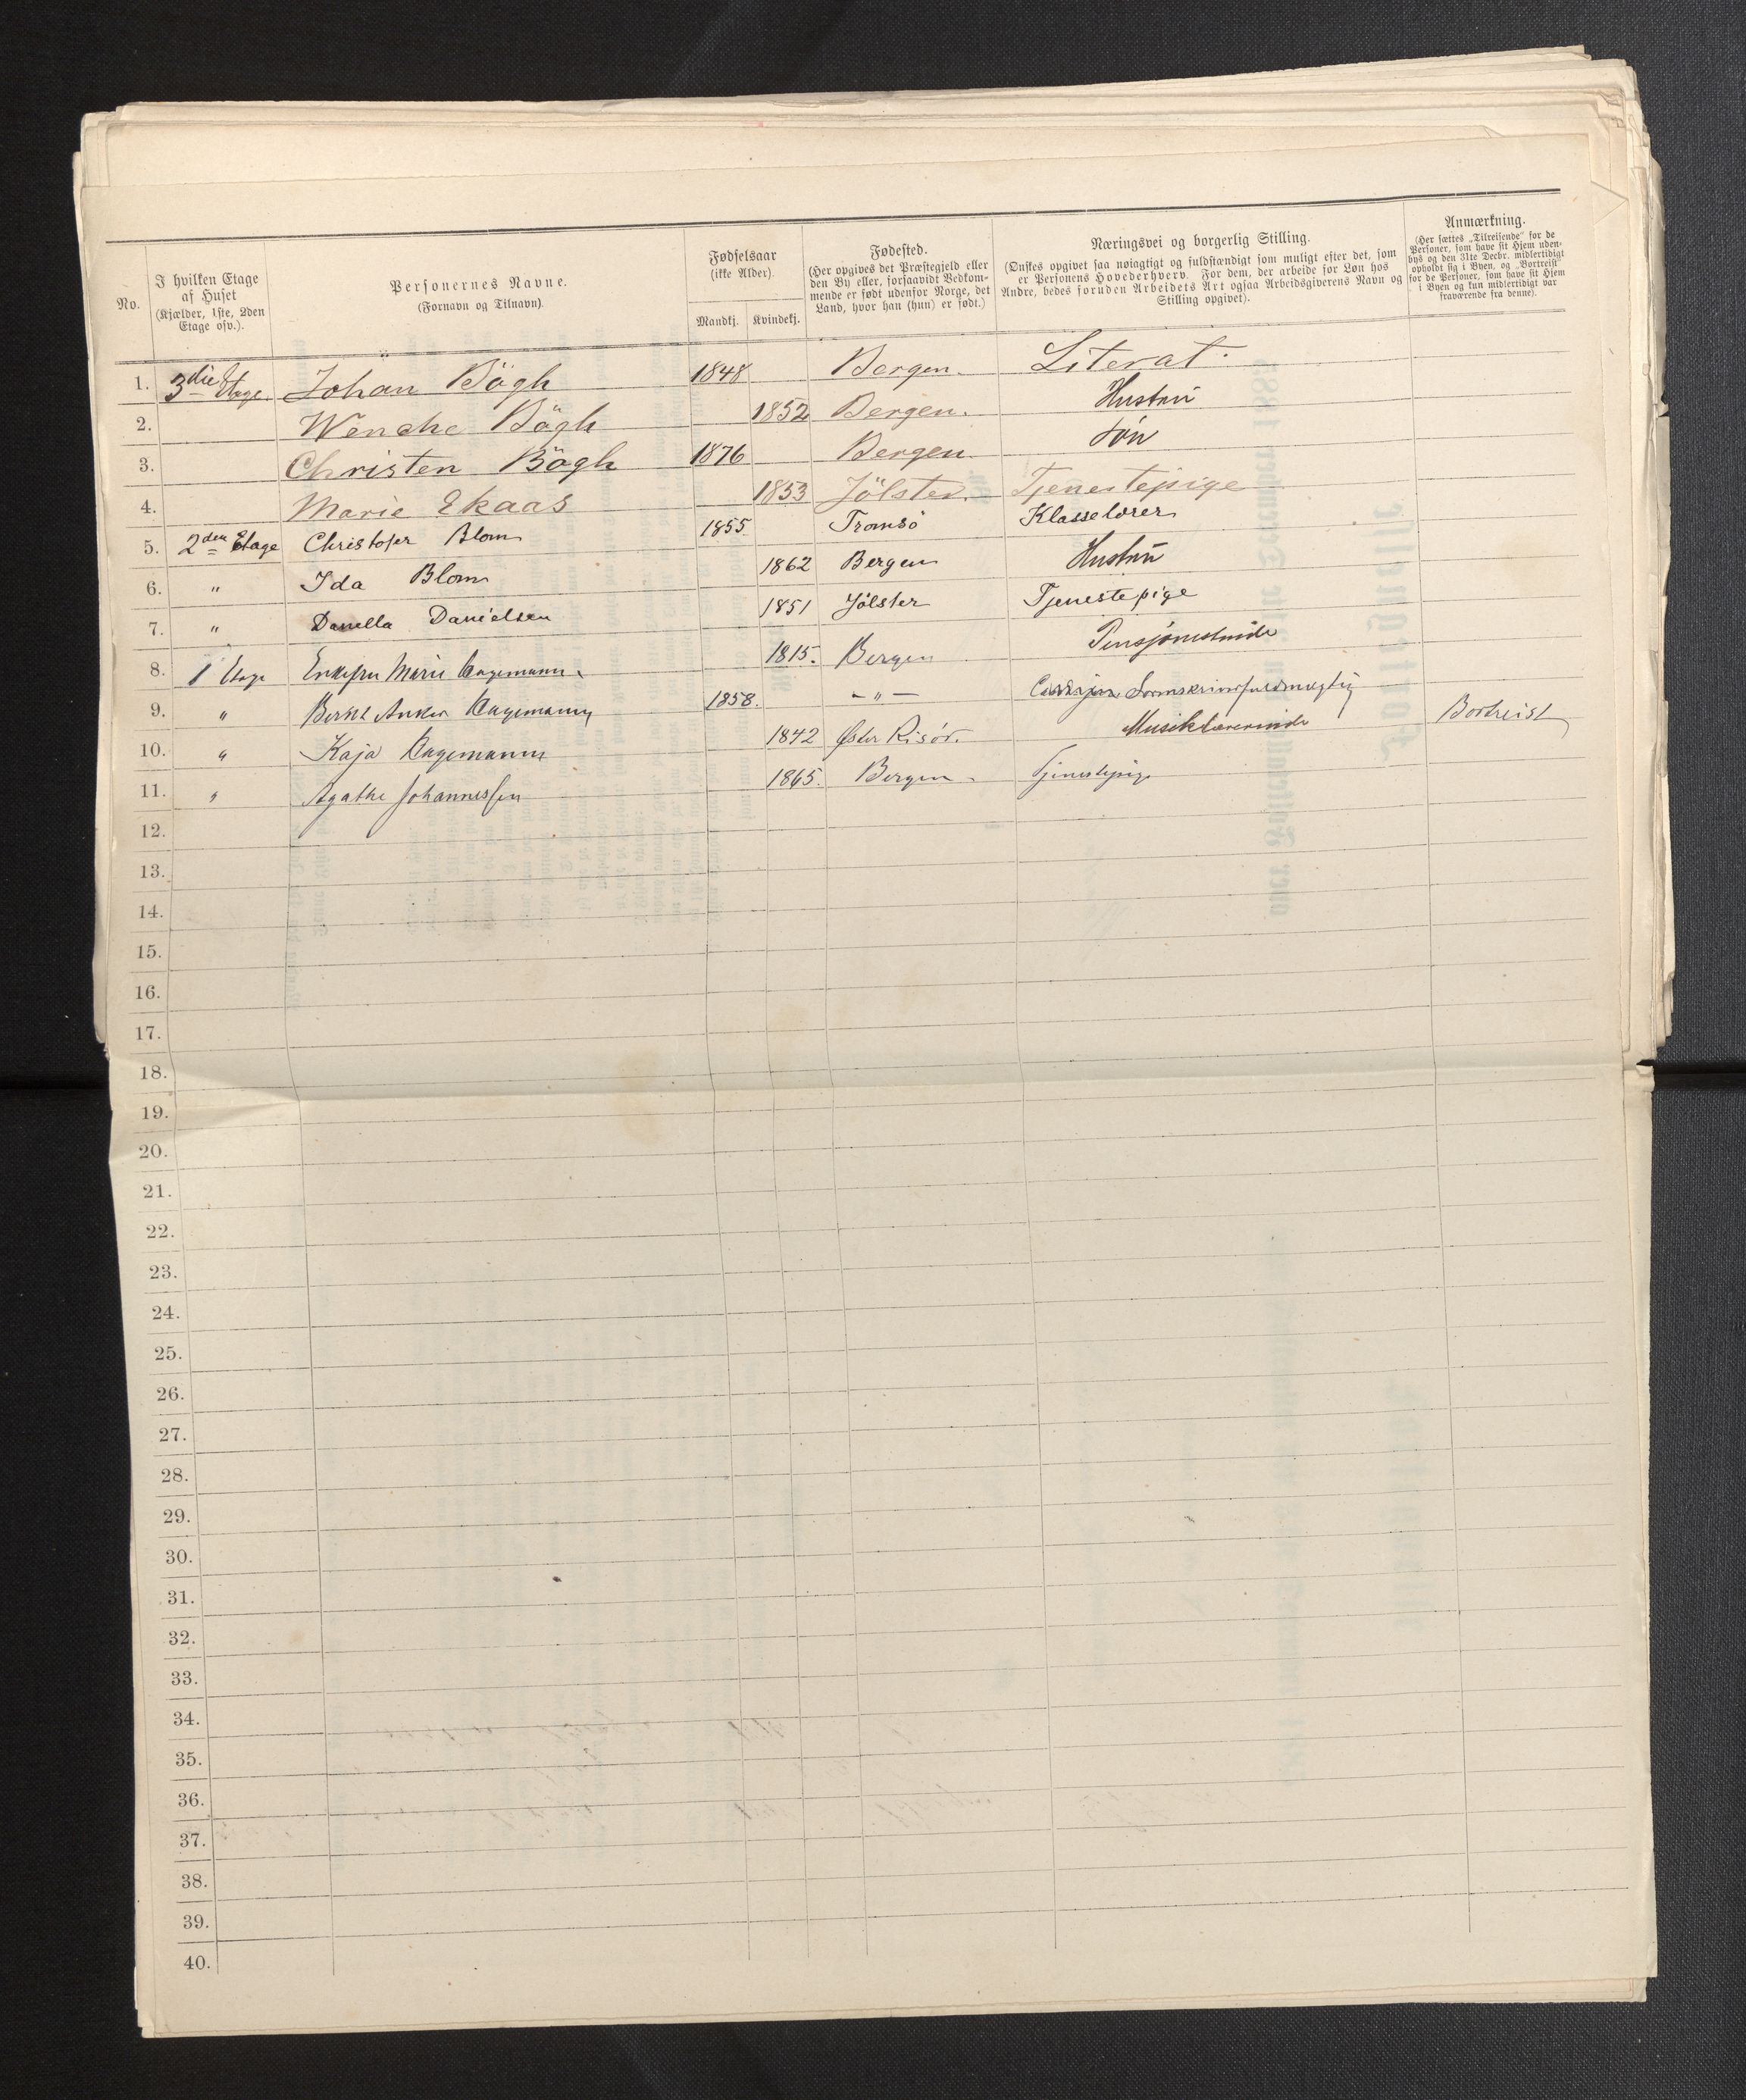 No.
I hvilken Etage af Huset (Kjælder, 1ste, 2den Etage osv.).
Personernes Navne. (Fornavn og Tilnavn).
Fødselsaar (ikke Alder). Mandkj. Kvindekj.
Fødested. (Her opgives det Præstegjeld eller den By eller, forsaavidt Vedkommende er født udenfor Norge, det Land, hvor han (hun) er født.)
Næringsvei og borgerlig Stilling. (Ønskes opgivet saa nøiagtigt og fuldstændigt som muligt efter det, som er Personens Hovederhverv. For dem, der arbeide for Løn hos Andre, bedes foruden Arbeidets Art ogsaa Arbeidsgiverens Navn og Stilling opgivet).
Anmærkning. (Her sættes „Tilreisende" for de Personer, som have sit Hjem udenbys og den 31te Decbr. midlertidigt opholdt sig i Byen, og „Bortreist" for de Personer, som have sit Hjem i Byen og kun midlertidigt var fraværende fra denne).
1. 3die Etage. Johan Bögh 1848 Bergen. Literat.
2. Wenche Bögh 1852 Bergen. Hustru
3. Christen Bögh 1876 Bergen Søn
4. Marie Ekaas 1853 Jölster. Tjenestepige
5. 2den Etage Christofer Blom 1855 Tromsö Klasselærer
6. " Ida Blom 1862 Bergen Hustru
7. " Danella Danielsen 1851 Jölster Tjenestepige
8. 1 Etage Enkefru Marie Hagemann 1815. Bergen Pensjonistinde
9. " Bernt Anker Hagemann 1858. — " — Sorenskriverfuldmægtig
10. " Kaja Hagemann 1842 Øster Risör. Musiklærerinde Bortreist
11. " Agathe Johannessen 1865. Bergen Tjenestepige
12.
13.
14.
15.
16.
17.
18.
19.
20.
21.
22.
23.
24.
25.
26.
27.
28.
29.
30.
31.
32.
33.
34.
35.
36.
37.
38.
39.
40.